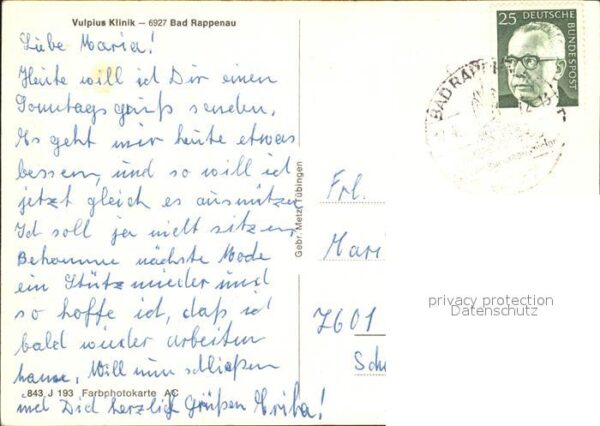 Vulpius Klinik – 6927 Bad Rappenau
Liebe Maria!
Heute will ich Dir einen
Sonntagsgruß senden.
Es geht mir heute etwas
bessen, und so will ich
jetzt gleich es ausnützen
Ich soll ja nicht sitzen,
Bekomme nächste Mode
ein Stützmieder und
so hoffe ich, daß ich
bald wieder arbeiten
kann. Will nun schließen
843 J 193 Farbphotokarte AC
und Dich herzlich Grüßen Erika!
Gebr. Metz, Tübingen
25 DEUTSCHE
BUNDESPOST
BAD RAPPENAU
Frl.
Mari
7601
Sch
privacy protection
Datenschutz